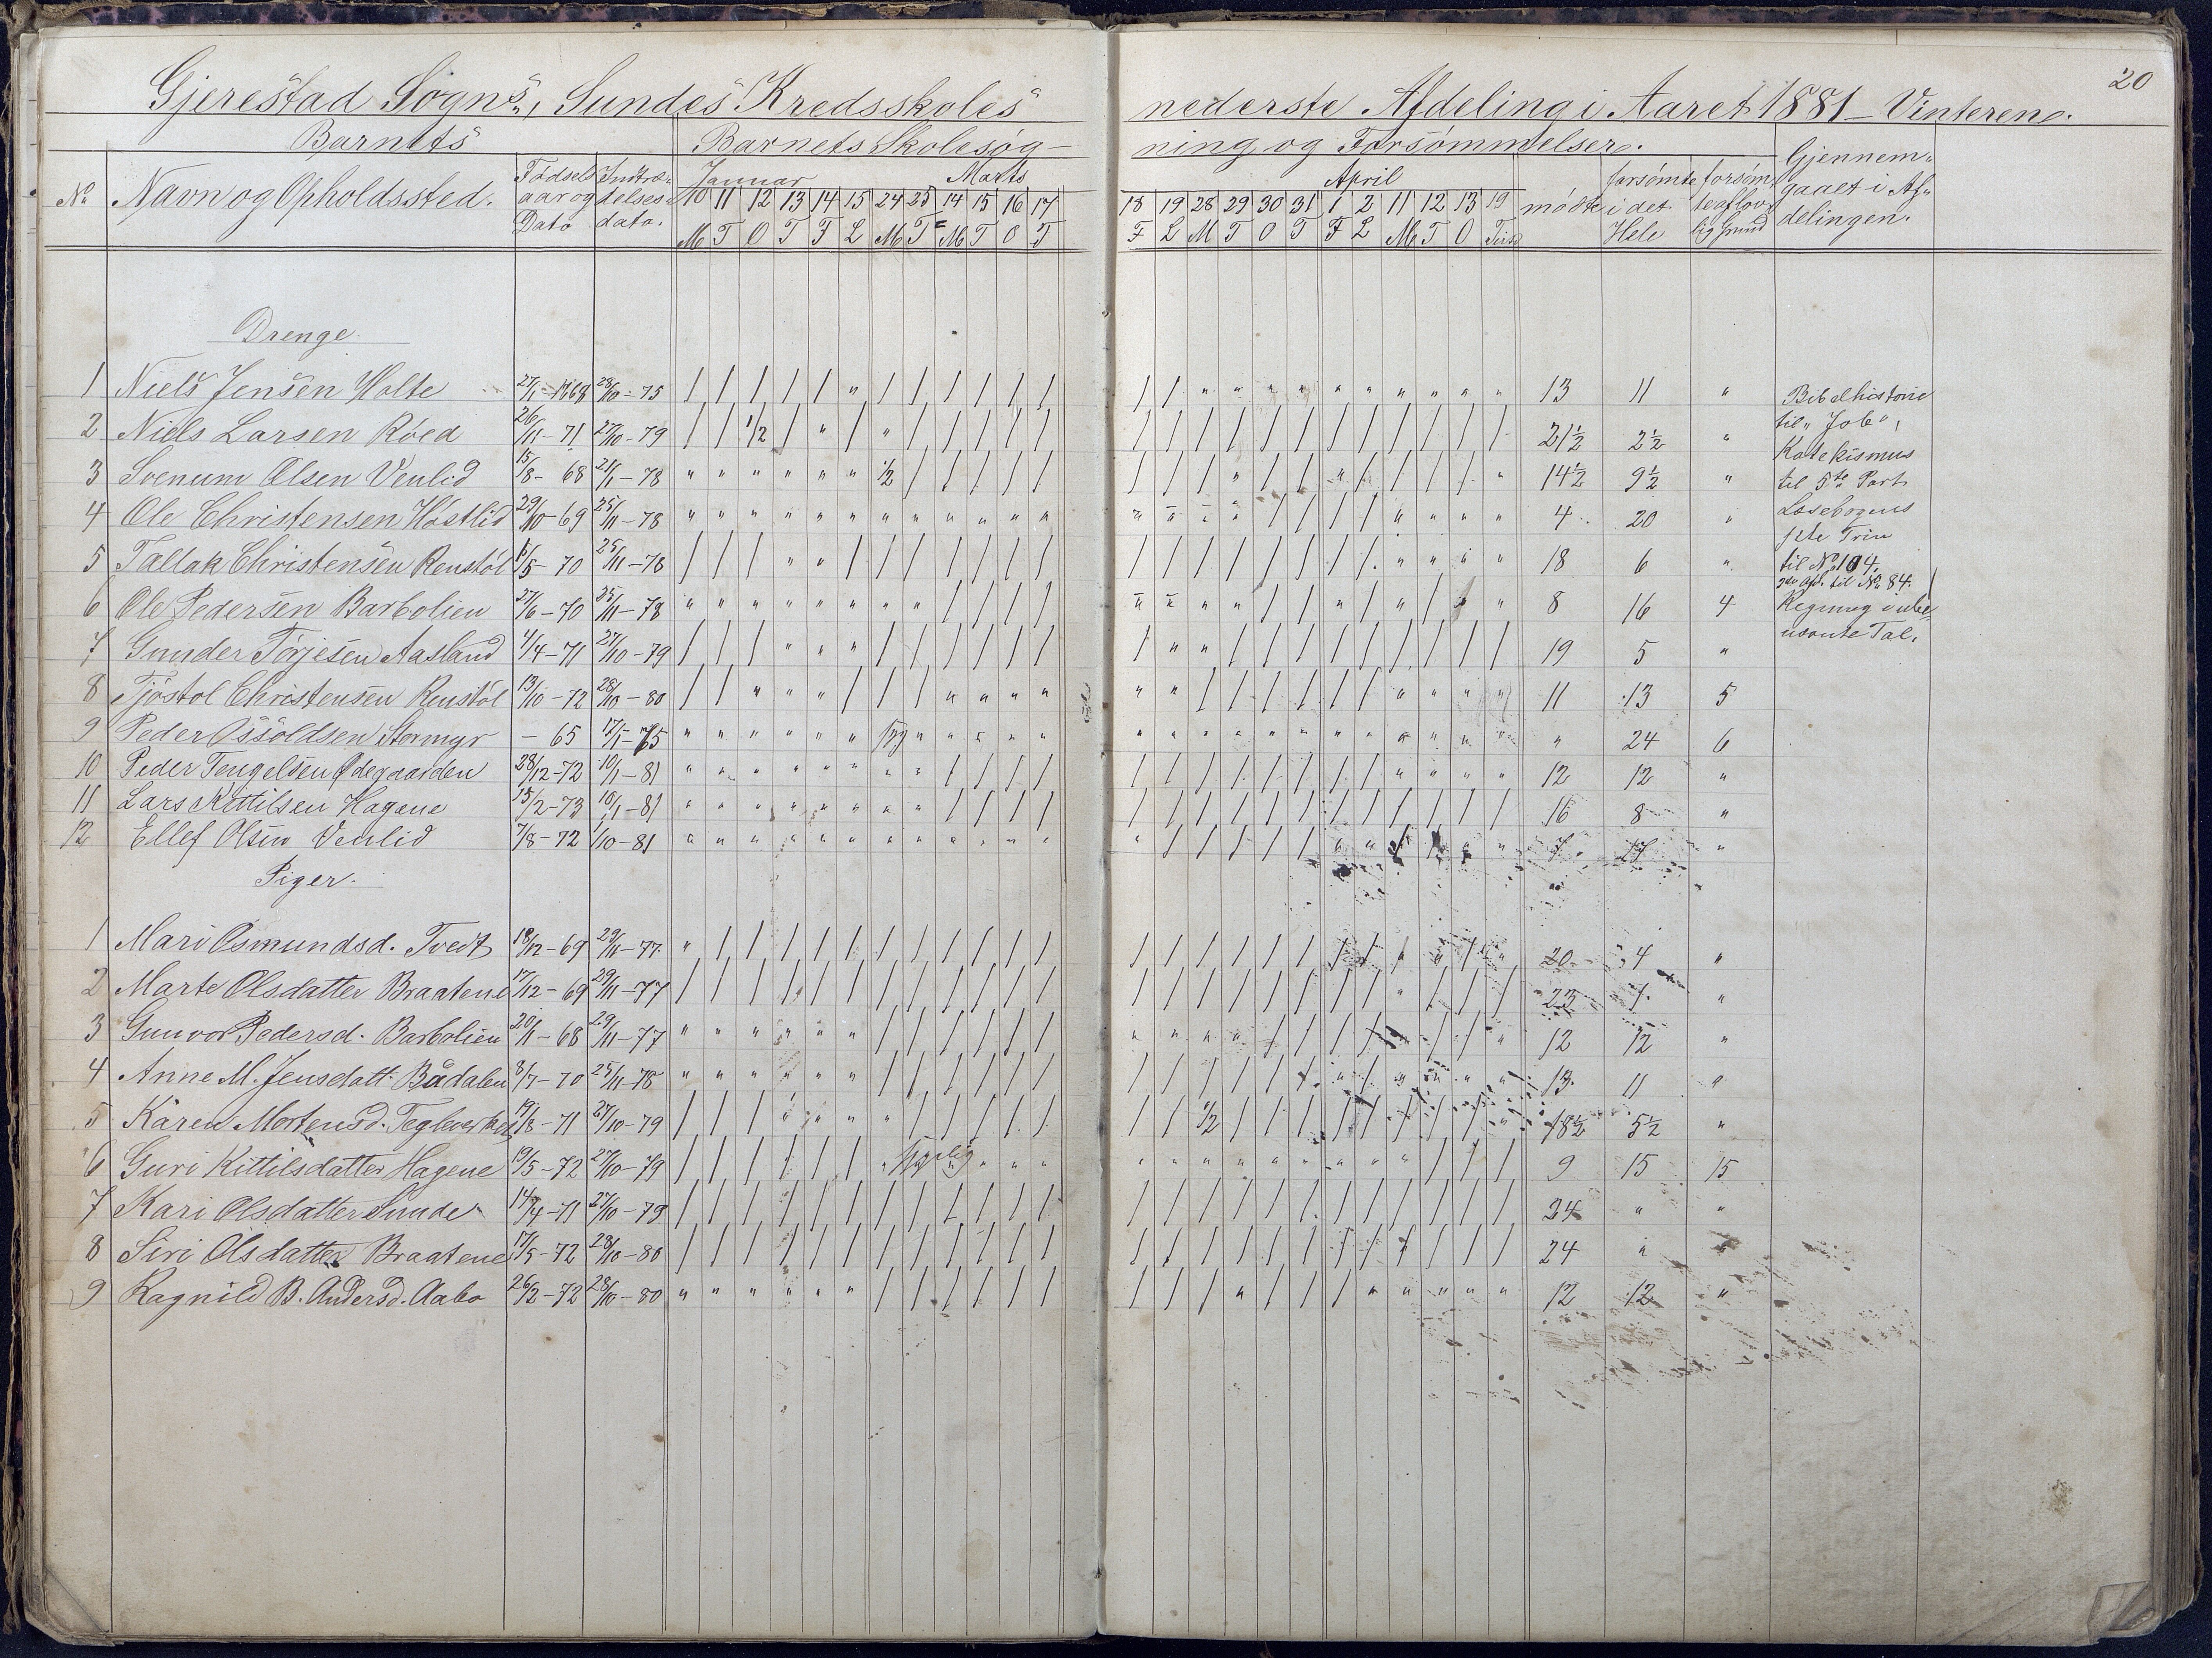 20
Gjerestad Sogns, Sundes Kredsskoles nederste Afdeling i Aaret 1881 – Vinteren.
Barnets Barnets Skolesøg- ning og Forsømmelser. Gjennem-
gaaet i Af-
delingen.
No Navn og Opholdssted. Fødsels Indtræ-
aar og delses-
Dato dato.
Januar Marts April
10 11 12 13 14 15 24 25 14 15 16 17 18 19 28 29 30 31 1 2 11 12 13 19
M T O T F L M T M T O T F L M T O T F L M T O Tirsd
mødte forsømte i det Hele forsømte af lovlig Grund
Drenge
1 Niels Jensen Holte 27/1 – 1868 28/10 – 75 | | | | | " | | | | | | | | " " " " " " " " " " 13 11 "
2 Niels Larsen Røed 26/11 – 71 27/10 – 79 | | 1/2 | " | " | | | | | | | | | | | | | | | | | 21½ 2½ "
3 Svenum Olsen Venlid 15/8 – 68 21/1 – 78 " " " " " " 1/2 | | | | | 14½ 9½ "
4 Ole Christensen Høstlid 29/10 – 69 25/11 – 78 " " " " " " " " " " " " 4 20 "
5 Tallak Christensen Renstøl 6/5 – 70 25/11 – 78 | | | " " | | | | | | | 18 6 "
6 Ole Pedersen Barbolien 27/6 – 70 25/11 – 78 " " " " " " " " | | | | 8 16 4
7 Gunder Tørjesen Aasland 4/4 – 71 27/10 – 79 | | | " " " | | | | | | 19 5 "
8 Tjøstol Christensen Renstøl 13/10 – 72 28/10 – 80 | | " " " | | | " " " " 11 13 5
9 Peder Ossoldsen Stormyr – 65 17/1 – 75 " " " " " " syg " " " " " 24 6
10 Peder Tengelsen Ødegaarden 28/12 – 72 10/1 – 81 " " " " " " " " | | | | 12 12 "
11 Lars Kittilsen Hagene 15/2 – 73 10/1 – 81 " " " " " " " " | | | | 16 8 "
12 Ellef Olsen Venlid 7/8 – 72 1/10 – 81 " " " " " " " " " " " " 7 17 "
Bibelhistorie
til "Job",
Katekismus
til 5te Part
Læsebogens
1ste Trin
til No 104,
2den Afd. til No 84.
Regning i ube-
nævnte Tal.
Piger.
1 Mari Osmundsd. Tvedt 18/12 – 69 29/11 – 77 " | | | | | | | | | | | 20 4 "
2 Marte Olsdatter Braatene 17/12 – 69 29/11 – 77 | | | | | | | | | | | | 23 1 "
3 Gunvor Pedersd. Barbolien 20/1 – 68 29/11 – 77 " " " " " " | | | | | | 12 12 "
4 Anne M. Jensdatt. Bådalen 8/7 – 70 25/11 – 78 " " " " " " | | | | | | 13 11 "
5 Karen Mortensd. Tegleverket 19/3 – 71 27/10 – 79 | | | " " " " | | | | | | | 1/2 18½ 5½ "
6 Guri Kittilsdatter Hagene 19/5 – 72 27/10 – 79 | | | | | | " sygelig " " " 9 15 15
7 Kari Olsdatter Sunde 14/4 – 71 27/10 – 79 | | | | | | | | | | | | 24 " "
8 Siri Olsdatter Braatene 17/5 – 72 28/10 – 80 | | | | | | | | | | | | 24 " "
9 Ragnild B. Andersd. Aabo 26/2 – 72 28/10 – 80 " " " " " " | | | | | | 12 12 "